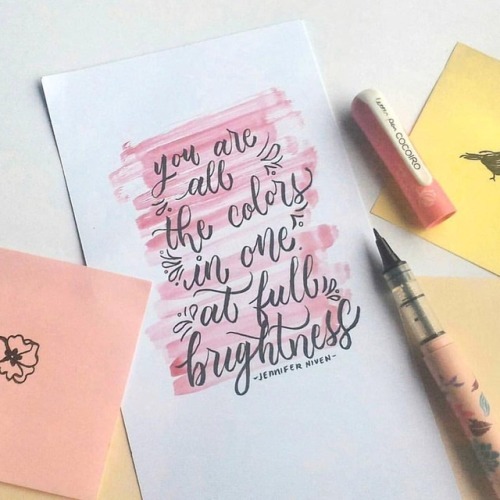 you are
all
the colors
in one
at full
brightness
-JENNIFER NIVEN-
COCOIRO